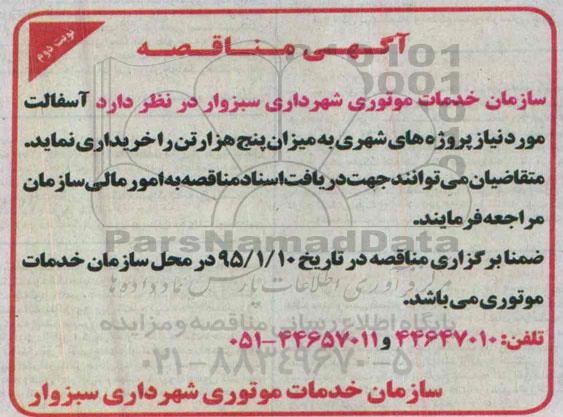 نوبت دوم
آگهی مناقصه
سازمان خدمات موتوری شهرداری سبزوار در نظر دارد آسفالت
مورد نیاز پروژه های شهری به میزان پنج هزار تن را خریداری نماید.
متقاضیان می توانند جهت دریافت اسناد مناقصه به امور مالی سازمان
مراجعه فرمایند.
ParsNamadData
ضمنا برگزاری مناقصه در تاریخ ۹۵/۱/۱۰ در محل سازمان خدمات
موتوری می باشد.
مرکز فرآوری اطلاعات پارس نماد داده ها
پایگاه اطلاع رسانی مناقصه و مزایده
تلفن: ۴۴۶۴۷۰۱۰ و ۴۴۶۵۷۰۱۱-۰۵۱
۰۲۱-۸۸۳۴۹۶۷۰-۵
سازمان خدمات موتوری شهرداری سبزوار